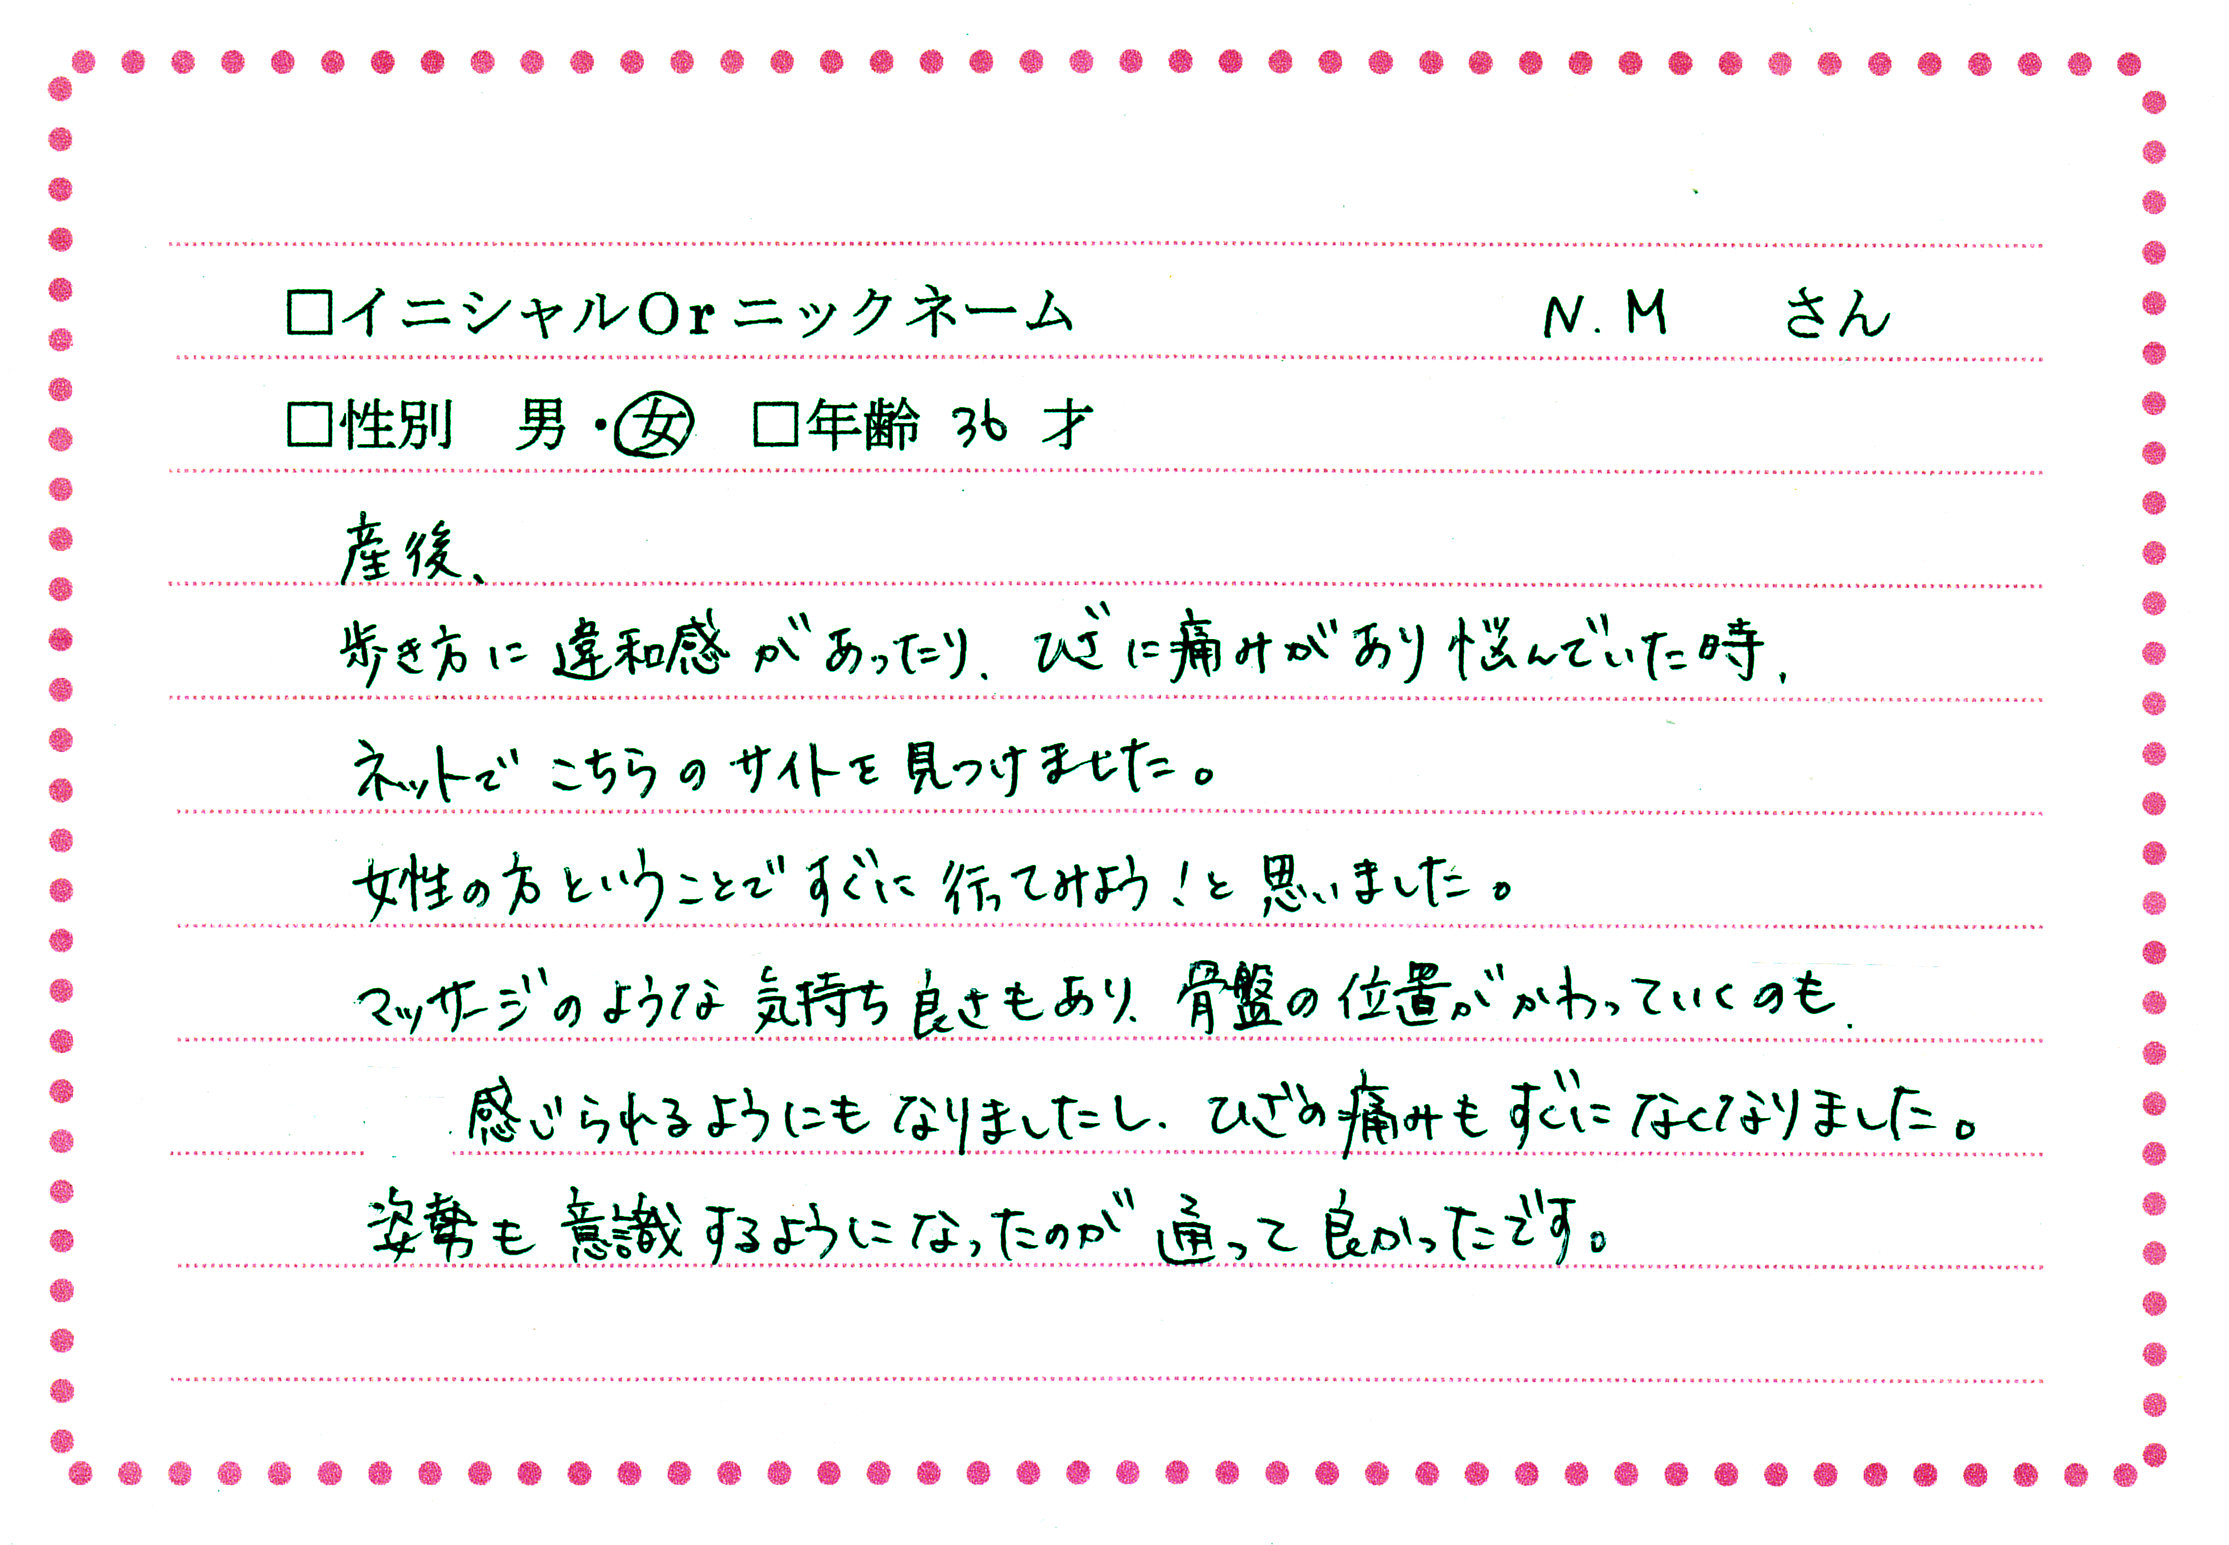 □イニシャルOrニックネーム N.M さん
□性別 男・女 □年齢 36 才
産後、
歩き方に違和感があったり、ひざに痛みがあり悩んでいた時、
ネットでこちらのサイトを見つけました。
女性の方ということですぐに行ってみよう！と思いました。
マッサージのような気持ち良さもあり、骨盤の位置がかわっていくのも、
感じられるようにもなりましたし、ひざの痛みもすぐになくなりました。
姿勢も意識するようになったのが通って良かったです。